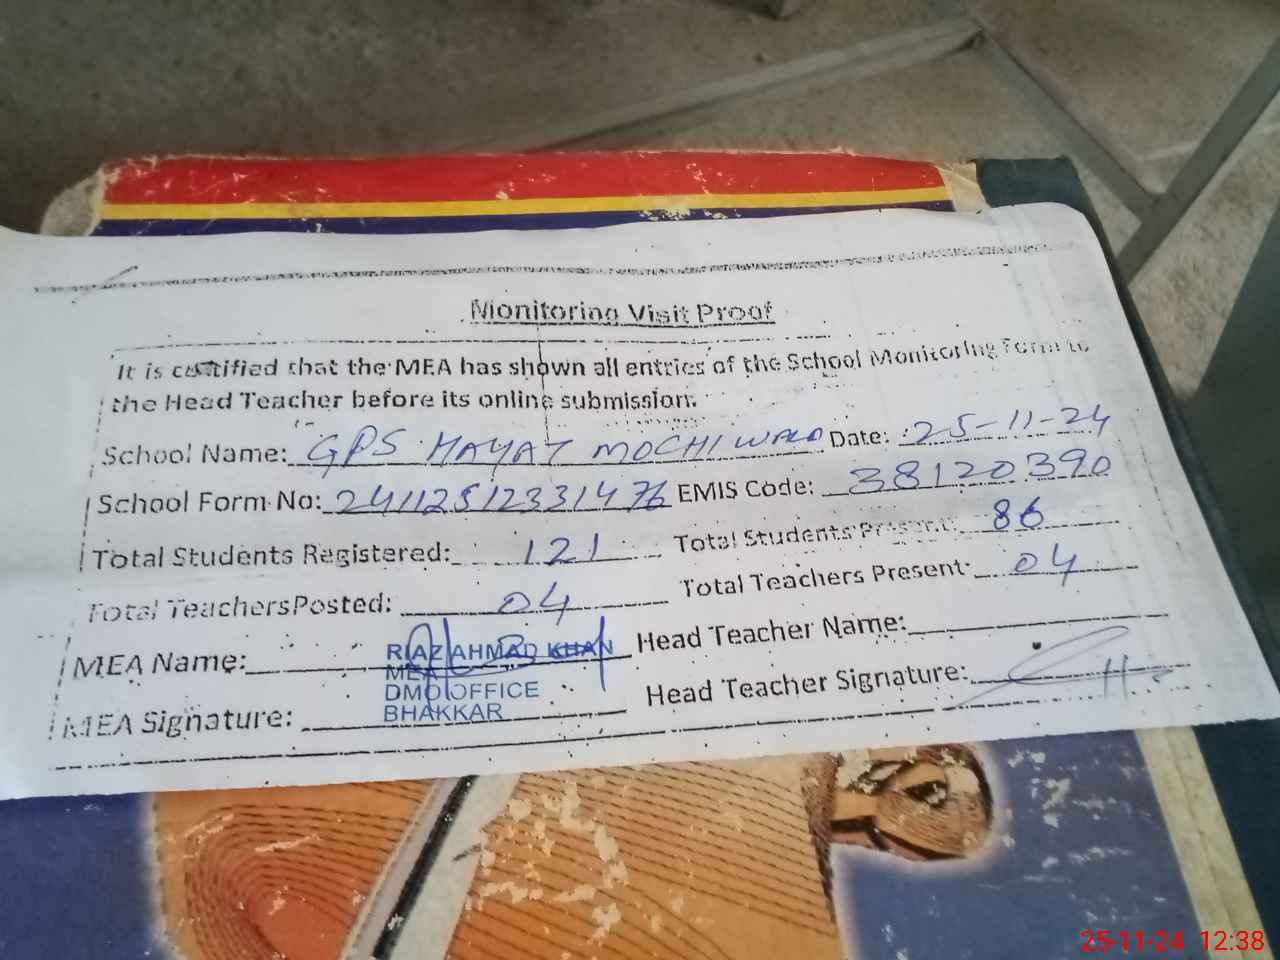 Monitoring Visit Proof
It is certified that the MEA has shown all entries of the School Monitoring Form to
the Head Teacher before its online submission.
School Name: GPS HAYAT MOCHI WALA Date: 25-11-24
School Form No: 241125123314 76 EMIS Code: 38120390
Total Students Registered: 121 Total Students Present: 86
Total Teachers Posted: 04 Total Teachers Present: 04
MEA Name: RIAZ AHMAD KHAN Head Teacher Name:
MEA
DMO OFFICE
MEA Signature: BHAKKAR Head Teacher Signature:
25-11-24 12:38